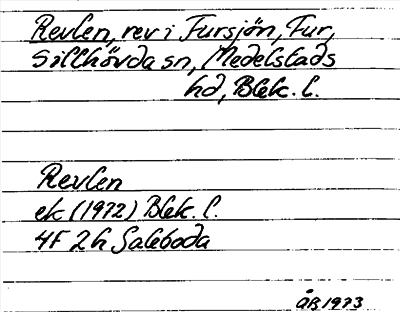 Revlen, rev i Fursjön, Fur,
Sillhövda sn, Medelstads
hd, Blek. l.
Revlen
ek (1972) Blek. l.
4F 2h Saleboda
ÅB 1973